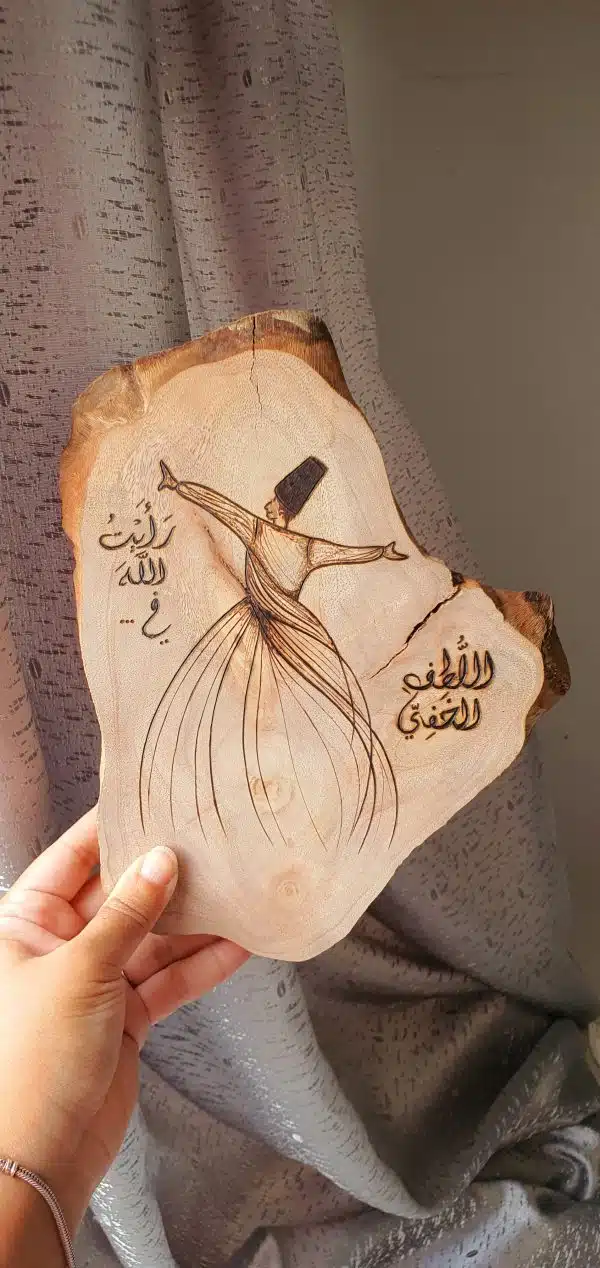 رَأَيْتُ
اللَّهَ
فِي ...
اللُّطفِ
الخَفِيّ